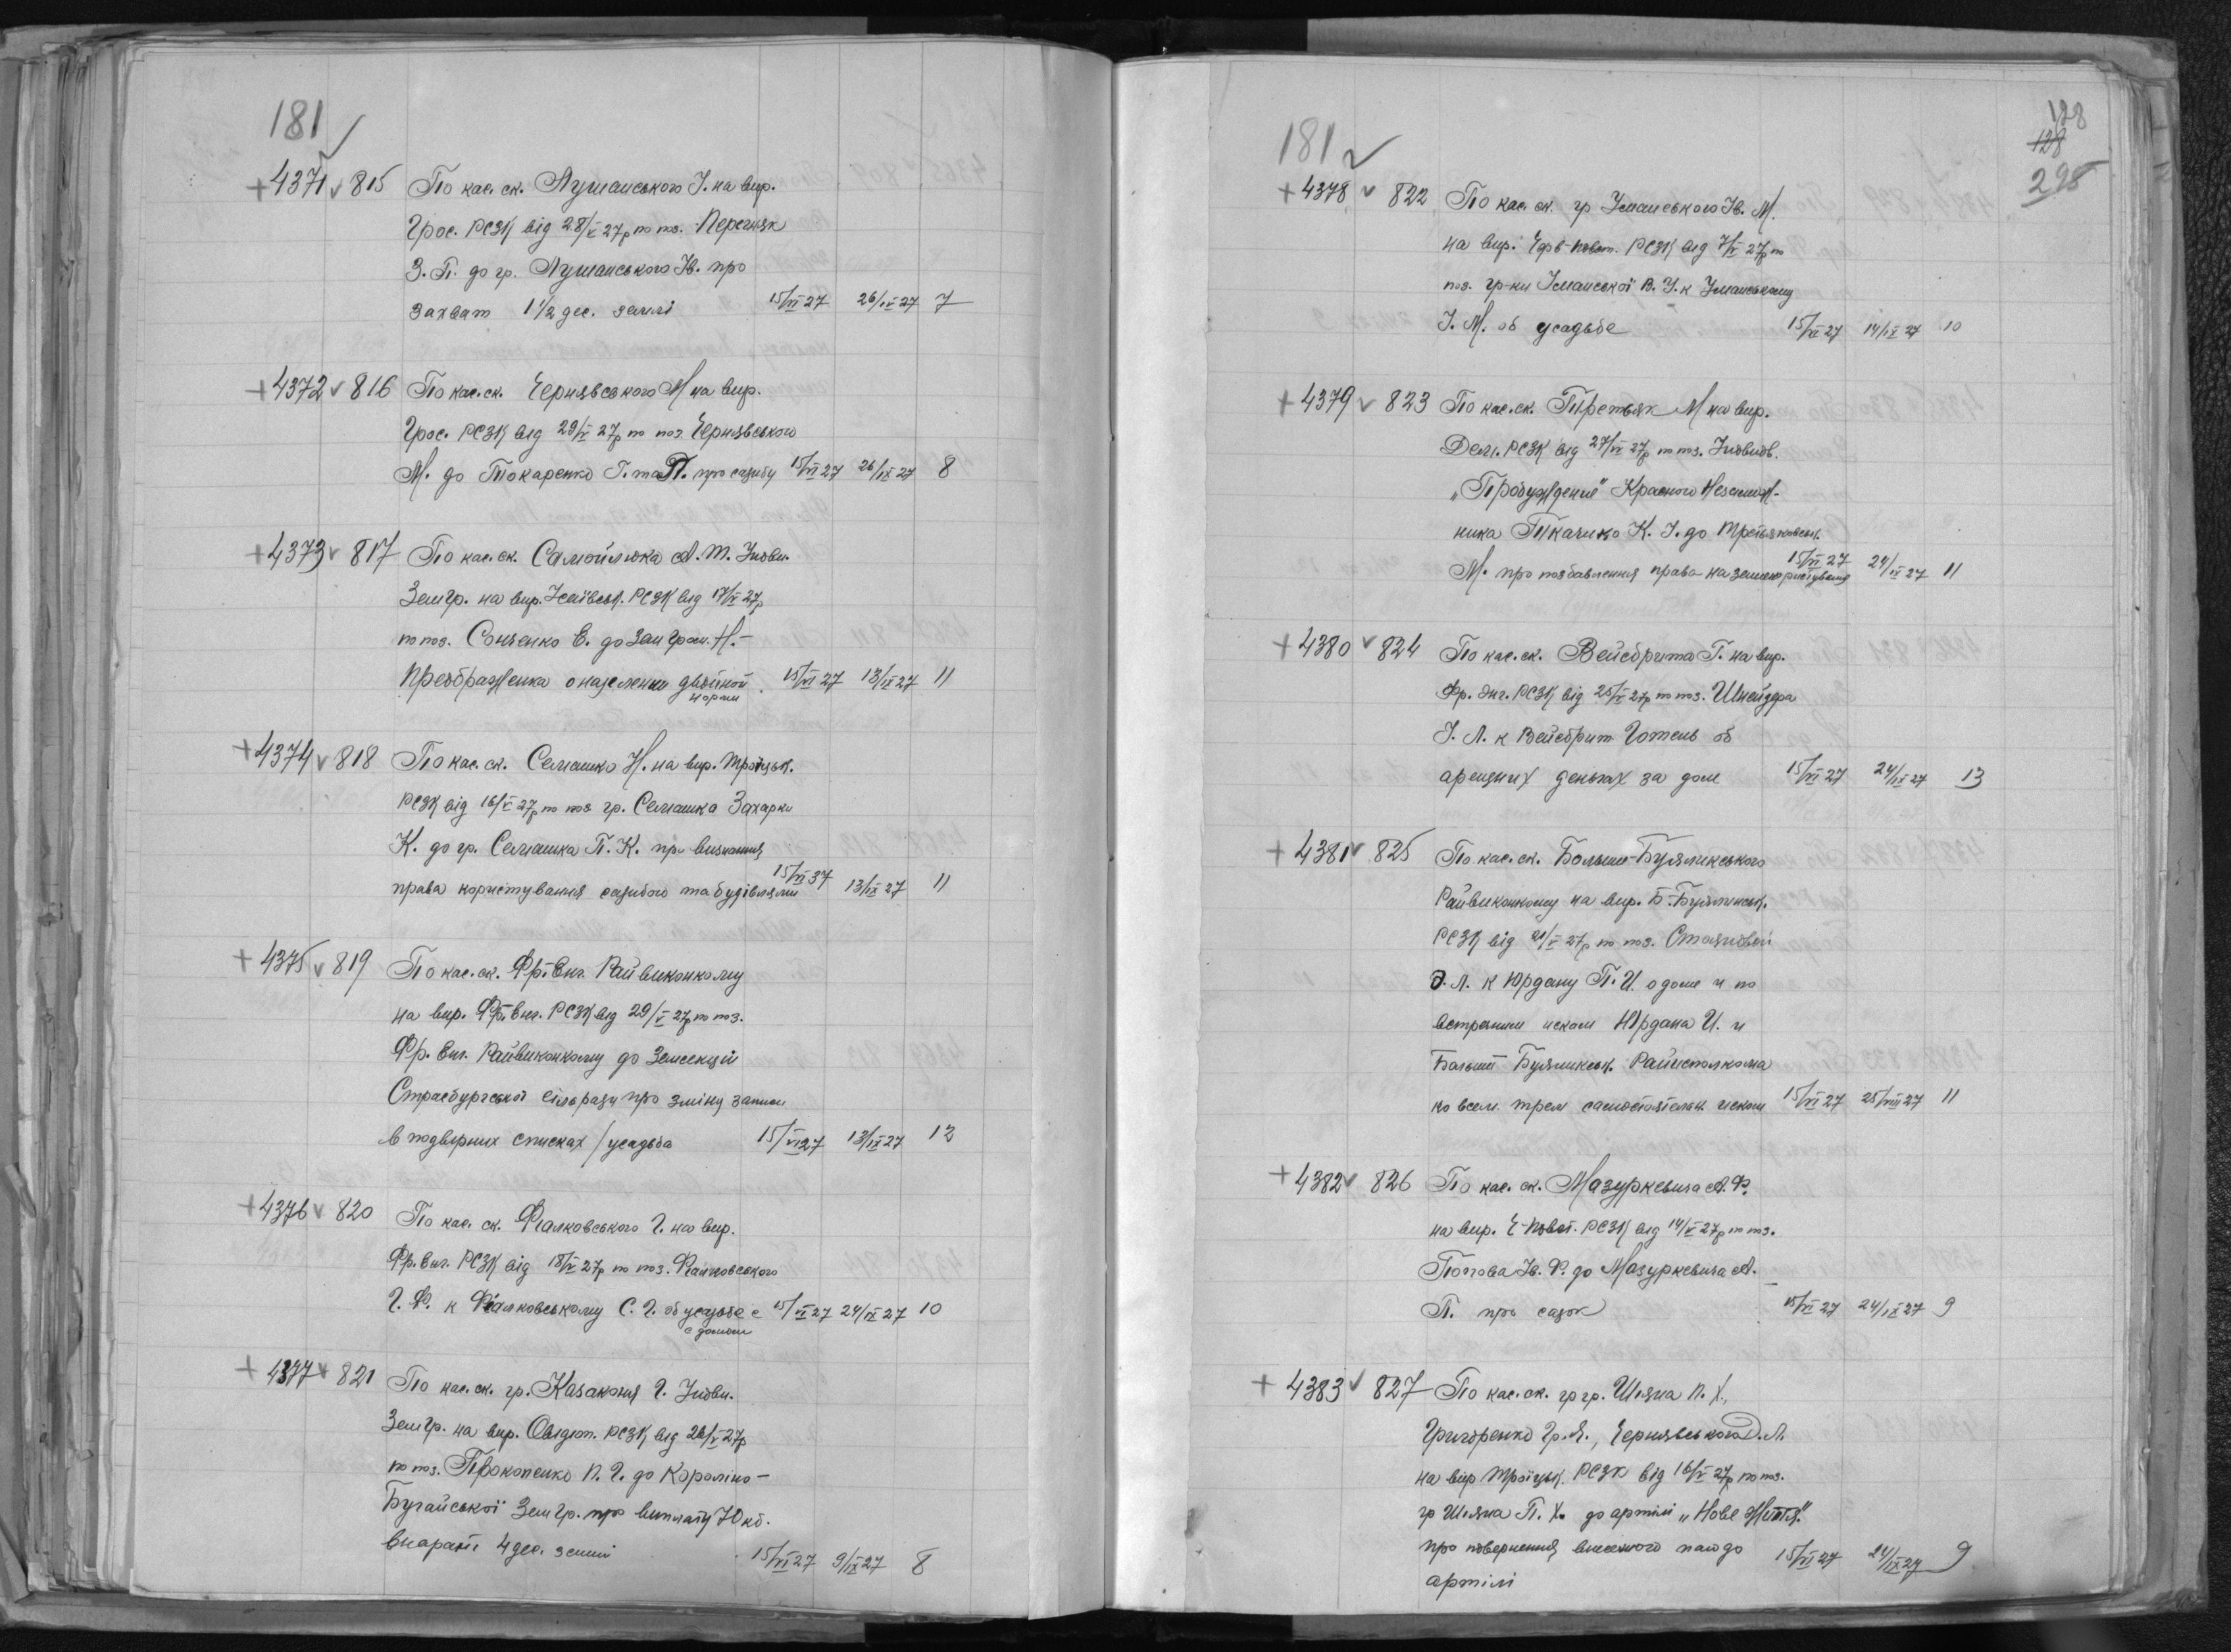 181
+4371 v 815 По кас. ск. Лушанського І. на вир.
Грос. РСЗК від 28/V 27р по поз. Перетяк
З. П. до гр. Лушанського Ів. про
захват 1 1/2 дес. землі 15/VI 27 26/IX 27 7
+4372 v 816 По кас. ск. Чернявського М на вир.
Грос. РСЗК від 29/V 27р по поз. Чернявського
М. до Токаренко Г. та П. про садибу 15/VI 27 26/IX 27 8
+4373 v 817 По кас. ск. Самойлюка А. Т. Уповн.
Земгр. на вир. Ісаївськ. РСЗК від 17/V 27р
по поз. до Зем гром. Н.-
Преображенка о наделении двойной 15/VI 27 13/IX 27 11
нормы
+4374 v 818 По кас. ск. Семашко Н. на вир. Троїцьк.
РСЗК від 16/V 27р по поз. гр. Семашка Захарки
К. до гр. Семашка П. К. про визнання
права користування садибою та будівлями 15/VI 37 13/IX 27 11
+4375 v 819 По кас. ск. Фр. Енг. Райвиконкому
на вир. Фр. Енг. РСЗК від 29/V 27р по поз.
Фр. Енг. Райвиконкому до Земсекції
Страсбургської сільради про зміну записи
в подворних списках / усадьба 15/VI 27 13/IX 27 12
+4376 v 820 По кас. ск. Фіалковського Г. на вир.
Фр. Енг. РСЗК від 18/V 27р по поз. Фіалковського
Г. Ф. к Фіалковському С. Г. об усадьбе с 15/VI 27 24/IX 27 10
с домом
+4377 v 821 По кас. ск. гр. Казаконя Г. Уповн.
Зем гр. на вир. Овидіоп. РСЗК від 26/V 27р
по поз. Прокопенко П. Г. до Кароліно-
Бугайської Зем гр. про виплату 70 кб.
4 дес. землі 15/VI 27 9/IX 27 8
128
128
298
181
+4378 v 822 По кас. ск. гр Уманського Ів. М.
на вир. РСЗК від 7/V 27р по
поз. гр-ки Уманської В. У. к Уманському
І. М. об усадьбе 15/VI 27 14/IX 27 10
+4379 v 823 По кас. ск. Третьяк М на вир.
Дем. РСЗК від 27/V 27р по поз.
„Пробуждение" Красного Незамож-
ника Ткачико К. І. до Третьяковськ.
М. про позбавлення права на землекористування 15/VI 27 24/IX 27 11
+4380 v 824 По кас. ск. Вейсбрита Г. на вир.
Фр. Энг. РСЗК від 25/V 27р по поз. Шнейдера
І. Л. к Вейсбрит Готель об
арендних деньгах за дом 15/VI 27 24/IX 27 13
+4381 v 825 По кас. ск. Больше-Буялинського
Райвиконкому на вир. Б.-Буялинськ.
РСЗК від 21/V 27р по поз. Стаяновой
Э. Л. к Юрдану П. И. о доме и по
встречним искам Юрдана И. и
Больше Буялинськ. Райисполкома
ко всем трем самостоятельн. искам 15/VI 27 25/VIII 27 11
+4382 v 826 По кас. ск. Мазуркевича А. Ф.
на вир. РСЗК від 14/V 27р по поз.
Попова Ів. Ф. до Мазуркевича А.
П. про садок 15/VI 27 24/IX 27 9
+4383 v 827 По кас. ск. гр гр. Шияна П. Х.,
Григоренко Гр. Я., Чернявського Д. Л.
на вир Троїцьк. РСЗК від 16/V 27р по поз.
гр Шияна П. Х. до артілі „Нове Життя"
про повернення внесеного паю до 15/VI 27 24/IX 27 9
артілі